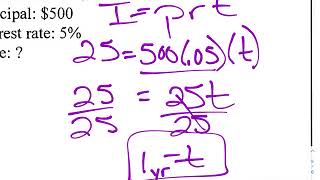 cipal: $500
I = prt
rest rate: 5%
e: ?
25 = 500(.05)(t)
25/25 = 25t/25
1 yr = t